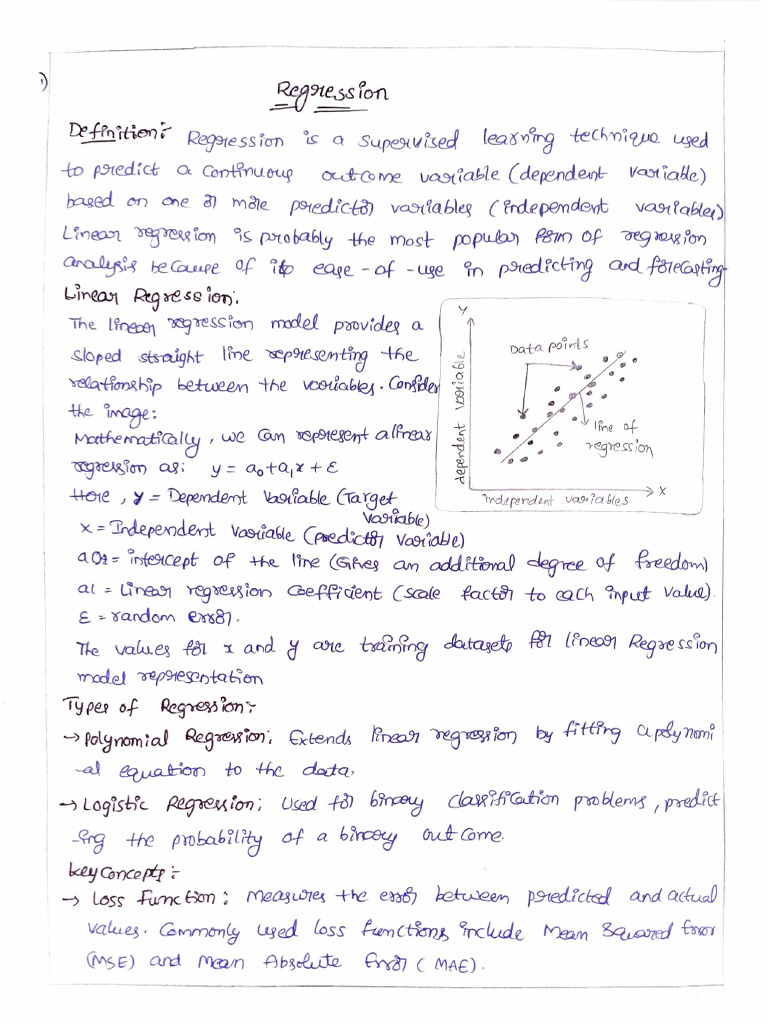 1)
Regression
Definition:- Regression is a supervised learning technique used
to predict a continuous outcome variable (dependent variable)
based on one or more predictor variables (independent variables)
Linear regression is probably the most popular form of regression
analysis because of its ease-of-use in predicting and forecasting.
Linear Regression:
The linear regression model provides a
sloped straight line representing the
relationship between the variables. Consider
the image:
Mathematically, we can represent a linear
regression as: y = a₀+a₁x+ε
Here, y = Dependent Variable (Target
Variable)
x = Independent Variable (predictor Variable)
a0= intercept of the line (Gives an additional degree of freedom)
a1 = Linear regression coefficient (scale factor to each input value).
ε = random error.
The values for x and y are training datasets for Linear Regression
model representation
Y
Data points
line of
regression
dependent variable
independent variables
X
Types of Regression:-
→ Polynomial Regression: Extends linear regression by fitting a polynomi
-al equation to the data.
→ Logistic Regression: Used for binary classification problems, predict
-ing the probability of a binary outcome.
Key Concepts:-
→ Loss Function: Measures the error between predicted and actual
values. Commonly used loss functions include Mean Squared Error
(MSE) and Mean Absolute Error (MAE).